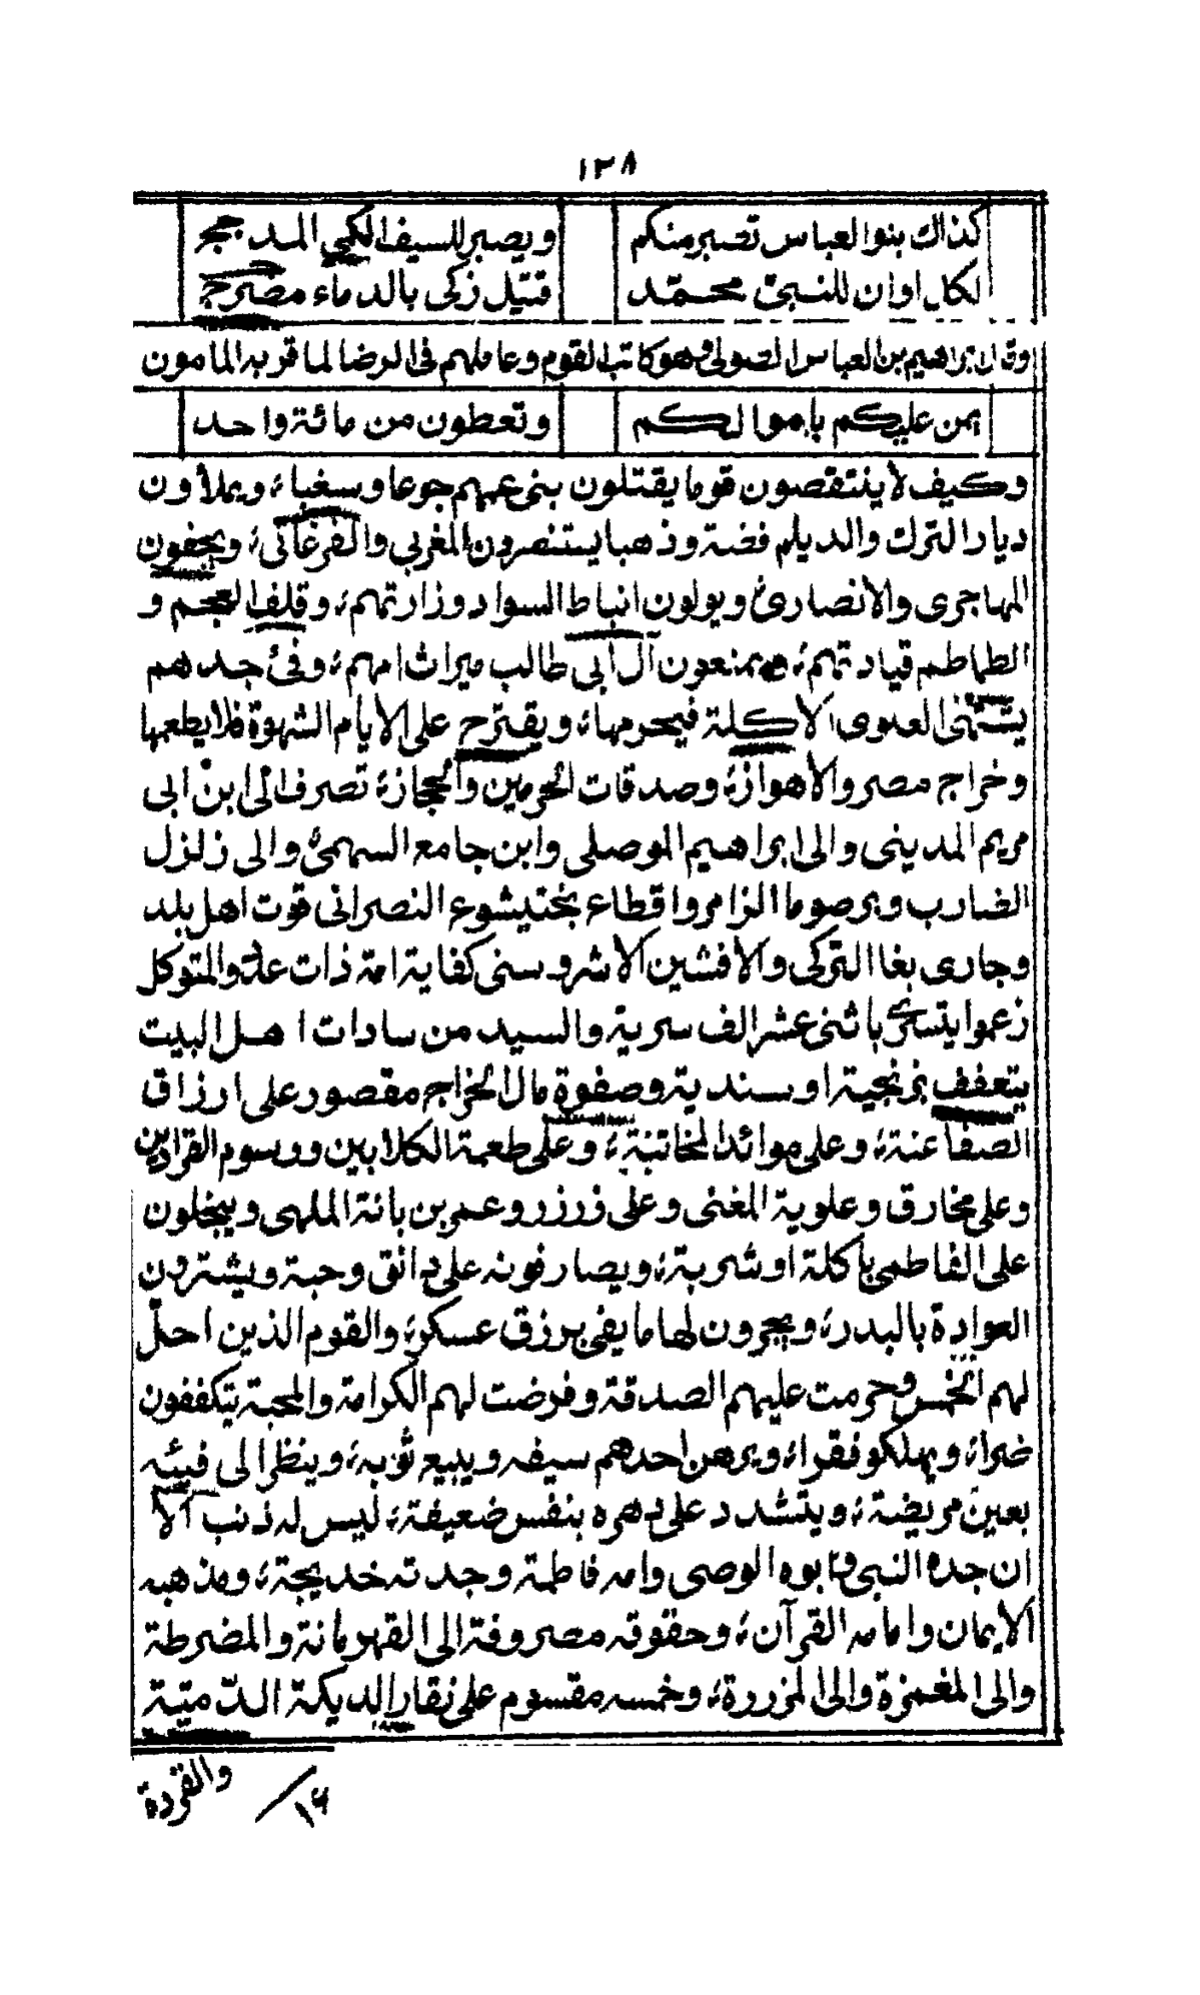 ١٣٨
كذاك بنوا لعباس تصبر منكم ويصبر للسيف الكمي المدجج
لكل اوان للنبي محمّد قتيل زكى بالدماء مضرج
وقال ابراهيم بن العباس الصولى وهو كاتب القوم وعاملهم فى الرضا لما قربه المامون
يمن عليكم باموالكم وتعطون من مائة واحد
وكيف لا ينتقصون قوما يقتلون بنى عمهم جوعا وسغباء ويملأون
ديار الترك والديلم فضة وذهبا يستنصرون المغربي والفرغانى ويجفون
المهاجرى والانصارى ويولون انباط السواد وزارتهم وقلف العجم و
الطماطم قيادتهم ويمنعون آل ابى طالب ميراث امهم وفئ جدهم
يشتهى العلوى الاكلة فيحرمها ويقترح على الايام الشهوة فلا يطعمها
وخراج مصر والاهواز وصدقات الحرمين والحجاز تصرف الى ابن ابى
مريم المدينى والى ابراهيم الموصلى وابن جامع السهمى والى زلزل
الضارب وبرصوما الزامر واقطاع بختيشوع النصرانى قوت اهل بلد
وجارى بغا التركى والافشين الاشروسنى كفاية امة ذات علة والمتوكل
زعموا يتسرى باثنى عشر الف سرية والسيد من سادات اهل البيت
يتعفف بزنجية او سندية وصفوة مال الخراج مقصور على ارزاق
الصفاعنة وعلى موائد المخاتنة وعلى طعمة الكلابين ورسوم القرادين
وعلى مخارق وعلوية المغنى وعلى زرزر وعمر بن بانة الملهى ويبخلون
على الفاطمى باكلة او شربة ويصارفونه على دانق وحبة ويشترون
العوادة بالبدر ويجرون لها ما يفى برزق عسكر والقوم الذين احل
لهم الخمس وحرمت عليهم الصدقة وفرضت لهم الكرامة والمحبة يتكففون
ضراء ويهلكو فقراء ويرهن احدهم سيفه ويبيع ثوبه وينظر الى فيئه
بعين مريضة ويتشدد على دهره بنفس ضعيفة ليس له ذنب الا
ان جده النبى وابوه الوصى وامه فاطمة وجدته خديجة ومذهبه
الايمان وامامه القرآن وحقوقه مصروفة الى القهرمانة والمضرطة
والى المغمزة والى المزررة وخمسه مقسوم على نقار الديكة الدّميّة
والقردة
١٤